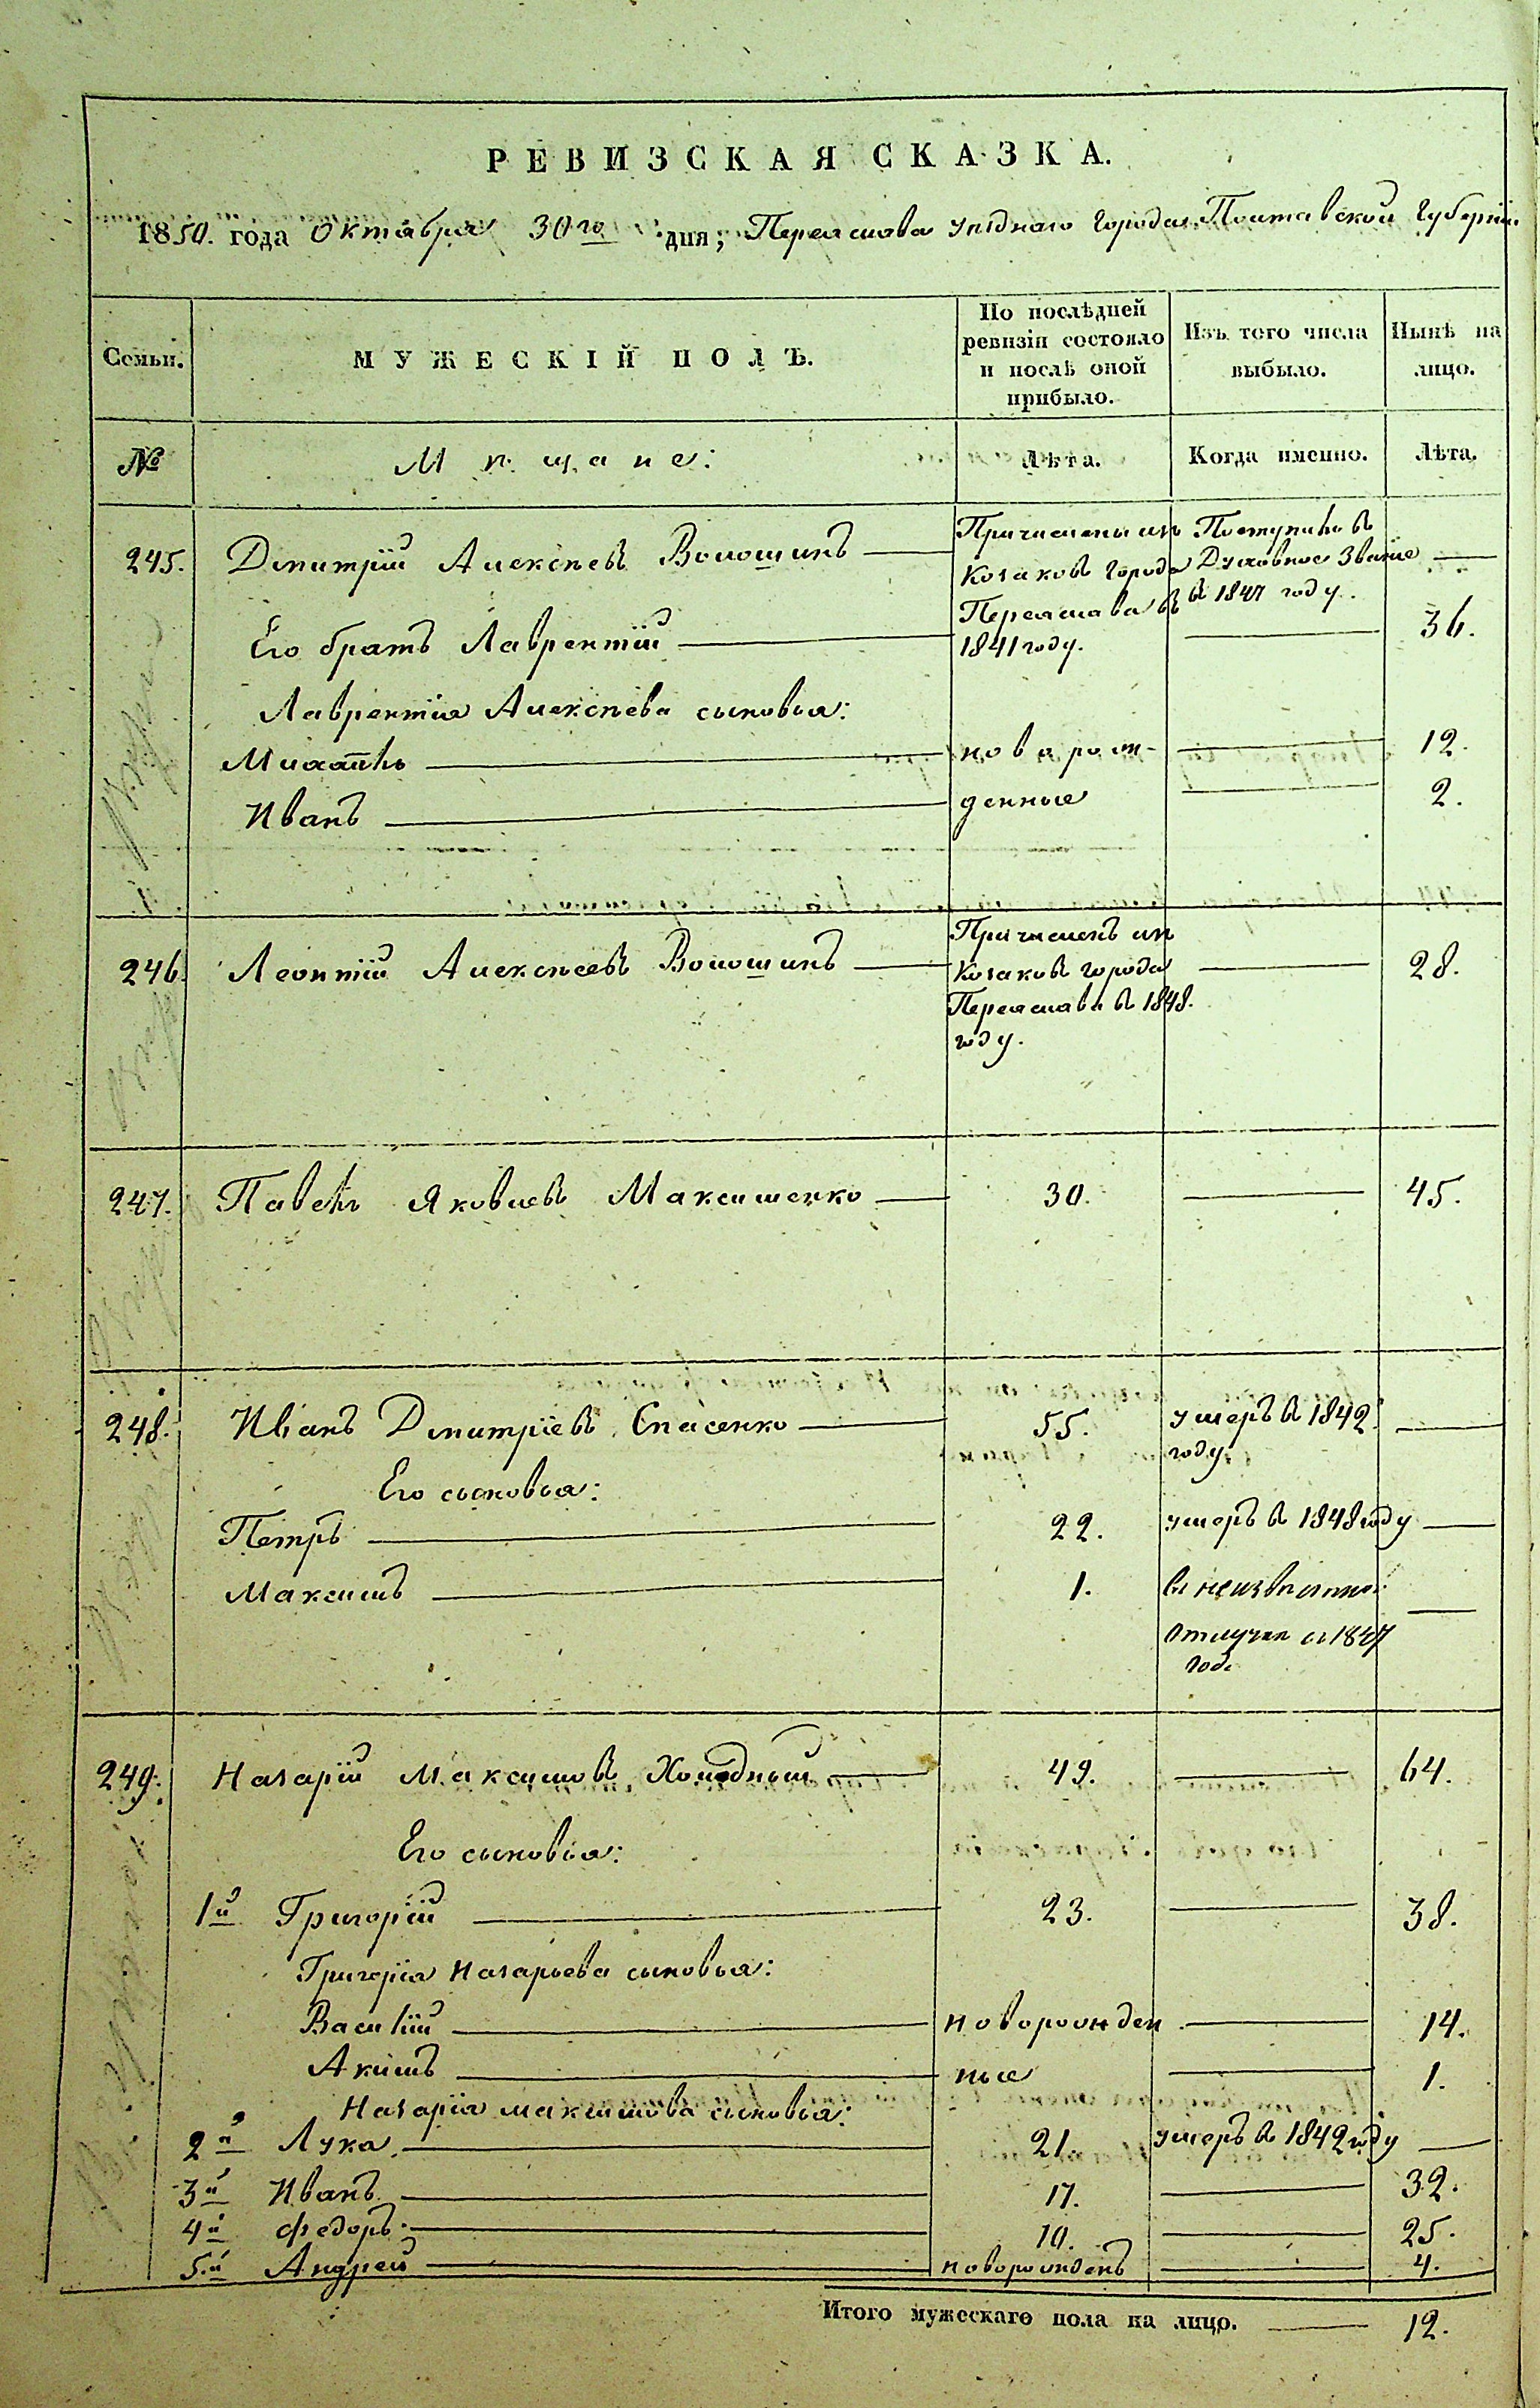 РЕВИЗСКАЯ СКАЗКА.
1850. года Октября 30го дня; Переяслава уѣзднаго города Полтавской Губерніи
Семьи. МУЖЕСКІЙ ПОЛЪ. По послѣдней ревизіи состояло и послѣ оной прибыло. Изъ того числа выбыло. Нынѣ на лицо.
№ Мѣщане: Лѣта. Когда именно. Лѣта.
245. Дмитрій Алексѣевъ Волошинъ Причислены изъ Поступилъ въ
козаковъ города Духовное Званіе
Переяслава въ въ 1847 году.
Его братъ Лаврентій 1841 году. 36.
Лаврентія Алексѣева сыновья:
Михаилъ новорож- 12.
Иванъ денные 2.
246. Леонтій Алексѣевъ Волошинъ Причисленъ изъ 28.
козаковъ города
Переяслава въ 1848.
году.
247. Павелъ Яковлевъ Максименко 30. 45.
248. Иванъ Дмитріевъ Спасенко 55. умеръ въ 1842
году
Его сыновья:
Петръ 22. умеръ въ 1848 году
Максимъ 1. въ неизвѣстной
отлучкѣ съ 1847
года
249. Назарій Максимовъ Холодный 49. 64.
Его сыновья:
1й Григорій 23. 38.
Григорія Назарьева сыновья:
Василій новорожден 14.
Акимъ ные 1.
Назарія Максимова сыновья:
2й Лука 21. умеръ въ 1842 году
3й Иванъ 17. 32.
4й Федоръ 10. 25.
5.й Андрей новорожденъ 4.
Итого мужескаго пола на лицо. 12.